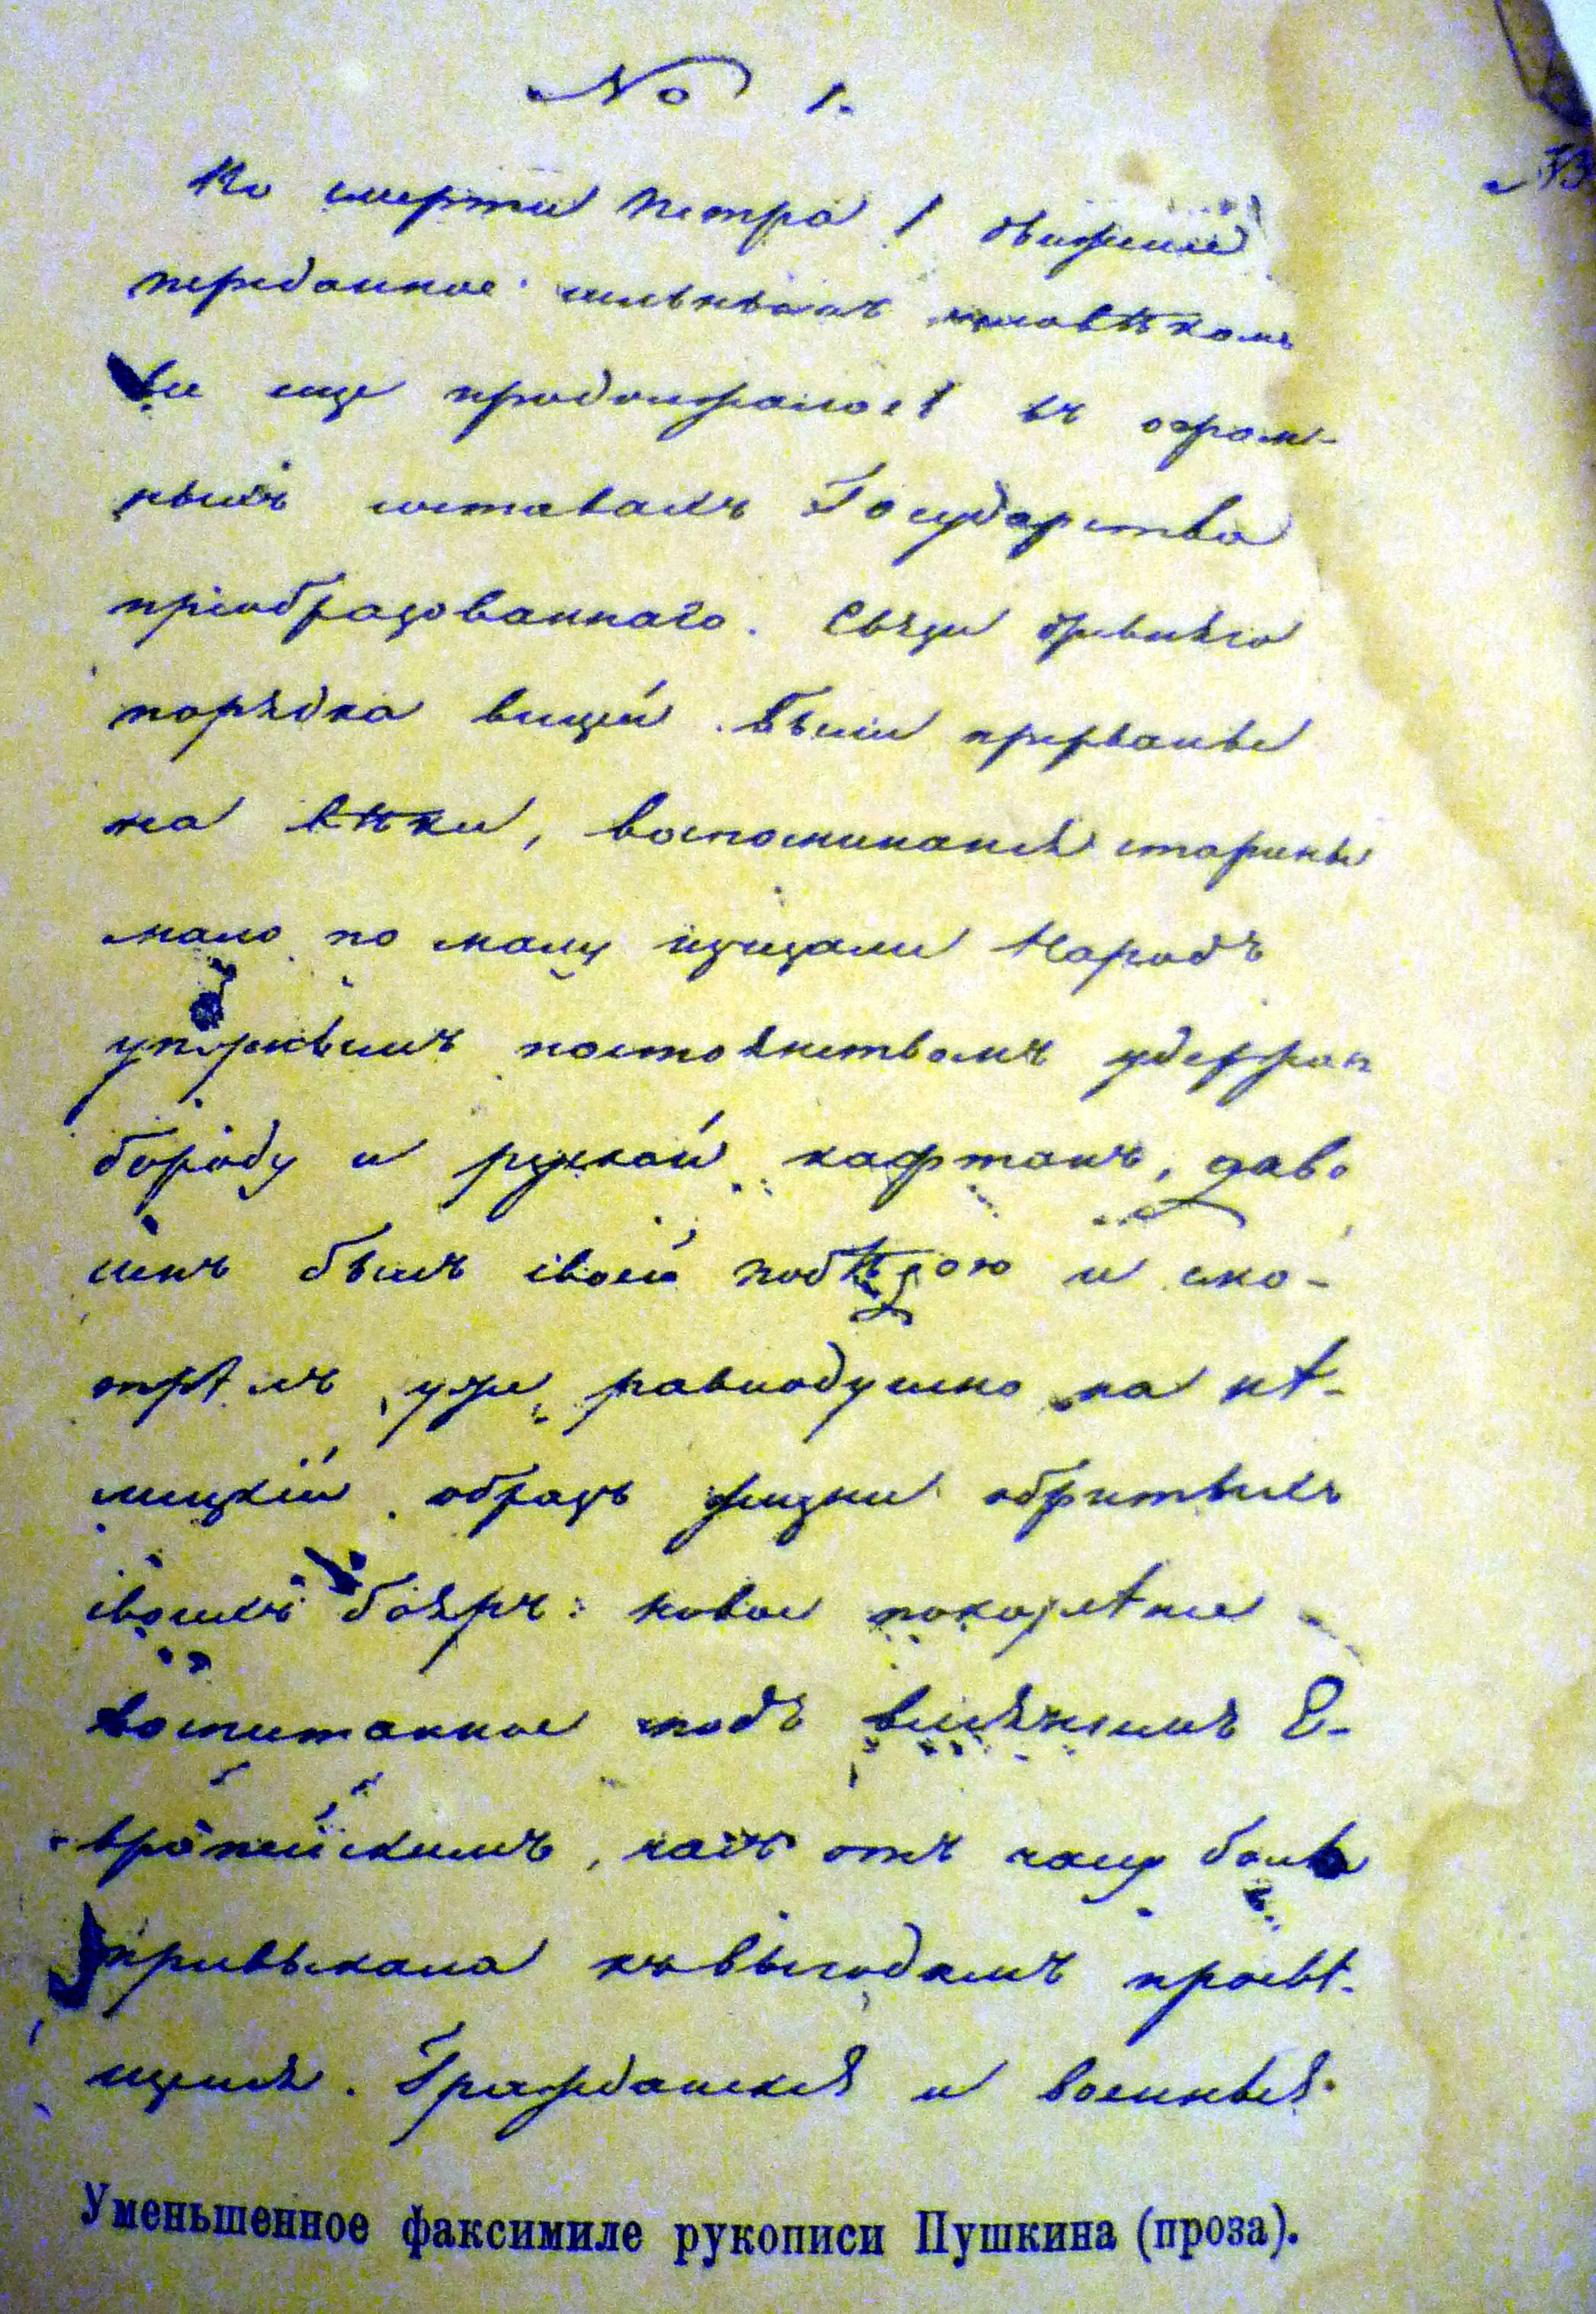 № 1.
По смерти Петра I движение
переданное сильнымъ человѣкомъ
все еще продолжалось въ огром-
ныхъ составахъ Государства
преобразованнаго. Связи древняго
порядка вещей были прерваны
на вѣки, воспоминанія старины
мало по малу изчезали Народъ
упорнымъ постоянствомъ удержал
бороду и руской кафтанъ, дово
ленъ былъ своей побѣдою и смо-
трѣлъ уже равнодушно на нѣ-
мецкій образъ жизни обритыхъ
своихъ бояръ: новое поколѣние
воспитанное подъ вліяніемъ Е-
вропейскимъ, часъ отъ часу болѣ
привыкала къ выгодамъ просвѣ-
щенія. Гражданскія и военныя
Уменьшенное факсимиле рукописи Пушкина (проза).